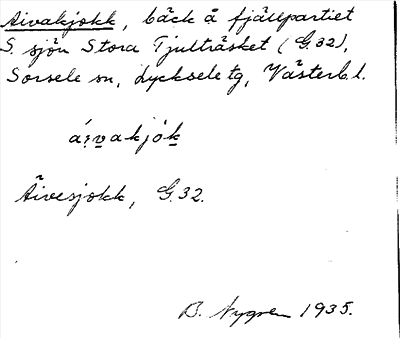 Aivakjokk, bäck å fjällpartiet
S. sjön Stora Tjulträsket (G.32),
Sorsele sn, Lycksele tg, Västerb. l.
áivakjók
Äivesjokk, G.32.
B. Nygren 1935.